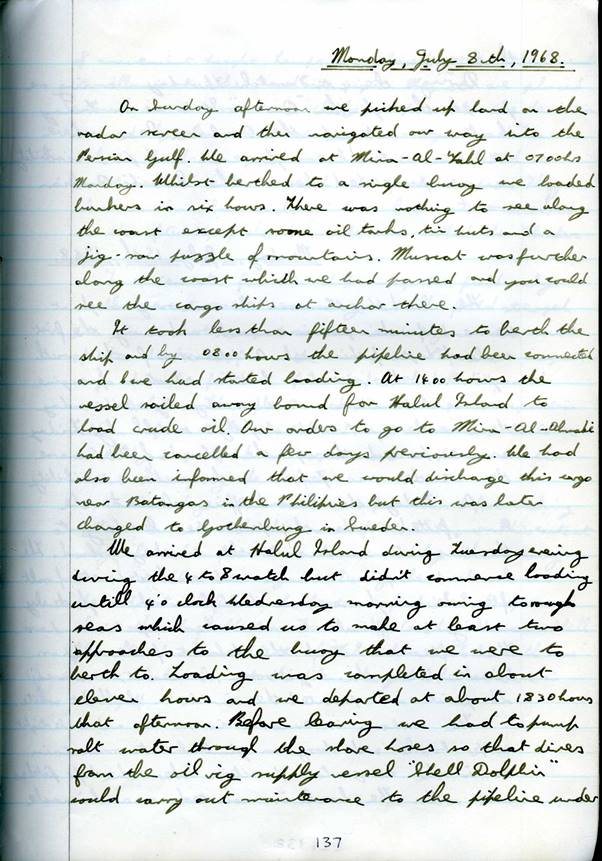 Monday, July 8th, 1968.
On Sunday afternoon we picked up land on the
radar screen and then navigated our way into the
Persian Gulf. We arrived at Mina-Al-Fahl at 0700hrs
Monday. Whilst berthed to a single buoy we loaded
bunkers in six hours. There was nothing to see along
the coast except some oil tanks, tin huts and a
jig-saw puzzle of mountains. Muscat was further
along the coast which we had passed and you could
see the cargo ships at anchor there.
It took less than fifteen minutes to berth the
ship and by 0800 hours the pipeline had been connected
and we had started loading. At 1400 hours the
vessel sailed away bound for Halul Island to
load crude oil. Our orders to go to Mina-Al-Ahmadi
had been cancelled a few days previously. We had
also been informed that we would discharge this cargo
near Batangas in the Philipines but this was later
changed to Gothenburg in Sweden.
We arrived at Halul Island during Tuesday evening
during the 4 to 8 watch but didn't commence loading
untill 4'o clock Wednesday morning owing to rough
seas which caused us to make at least two
approaches to the buoy that we were to
berth to. Loading was completed in about
eleven hours and we departed at about 1830 hours
that afternoon. Before leaving we had to pump
salt water through the shore hoses so that divers
from the oil rig supply vessel "Shell Dolphin"
could carry out maintenance to the pipeline under
137